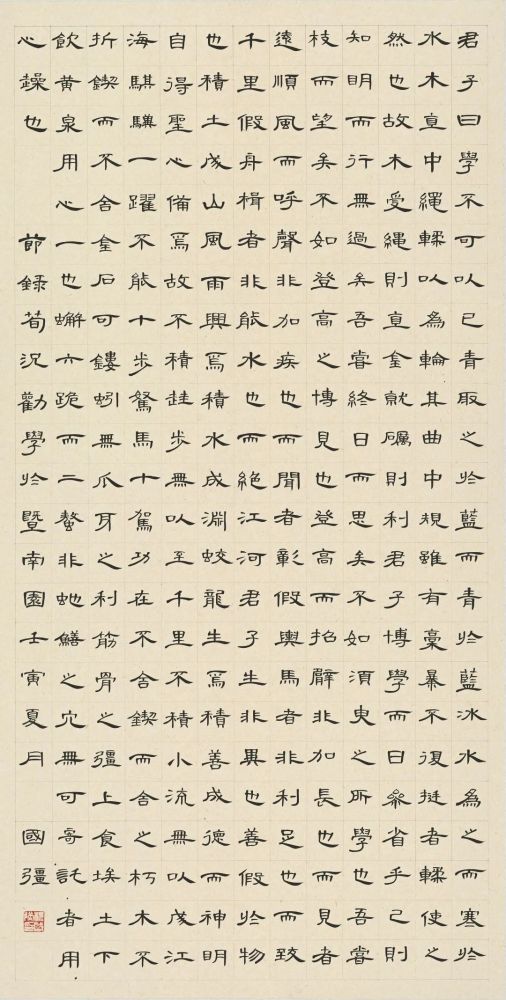 君子曰學不可以已青取之於藍而青於藍冰水為之而寒於
水木直中繩輮以為輪其曲中規雖有槀暴不復挺者輮使之
然也故木受繩則直金就礪則利君子博學而日參省乎己則
知明而行無過矣吾嘗終日而思矣不如須臾之所學也吾嘗
枝而望矣不如登高之博見也登高而招臂非加長也而見者
遠順風而呼聲非加疾也而聞者彰假輿馬者非利足也而致
千里假舟楫者非能水也而絕江河君子生非異也善假於物
也積土成山風雨興焉積水成淵蛟龍生焉積善成德而神明
自得聖心備焉故不積跬步無以至千里不積小流無以成江
海騏驥一躍不能十步駑馬十駕功在不舍鍥而舍之朽木不
折鍥而不舍金石可鏤蚓無爪牙之利筋骨之彊上食埃土下
飲黃泉用心一也蠏六跪而二螯非虵鱔之穴無可寄託者用
心躁也 節録荀況勸學於暨南園壬寅夏月 國彊